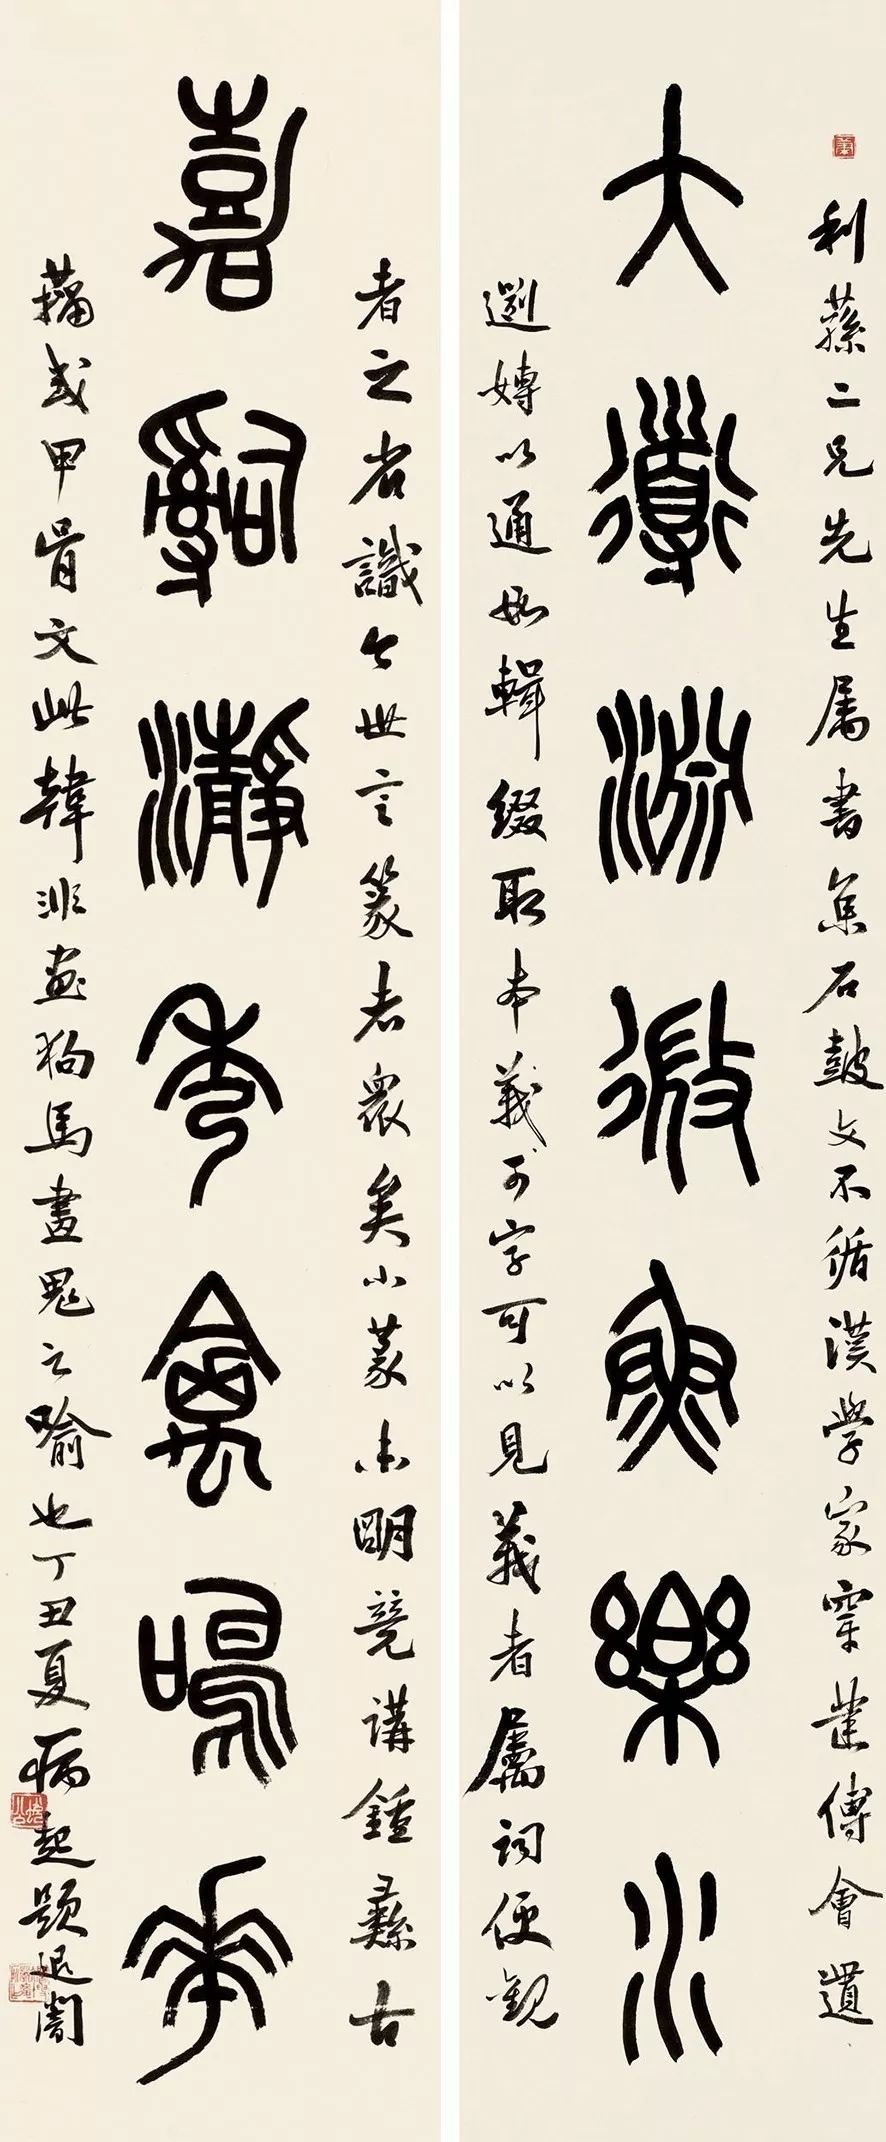 利蓀二兄先生属書集石鼓文不循漢學家穿鑿傅會遺
大道淵微魚樂水
嫥以通叚輯綴取本義于字可以見義者屬詞便觀
者之省識今世言篆者衆矣小篆未明競講鍾彝古
嘉辭瀞秀禽鳴華
籀或甲骨文此韓非画狗馬畫鬼之喻也丁丑夏病起題退闇